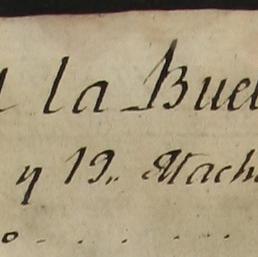 la Buel
y 19. Mach
o - . . . . .